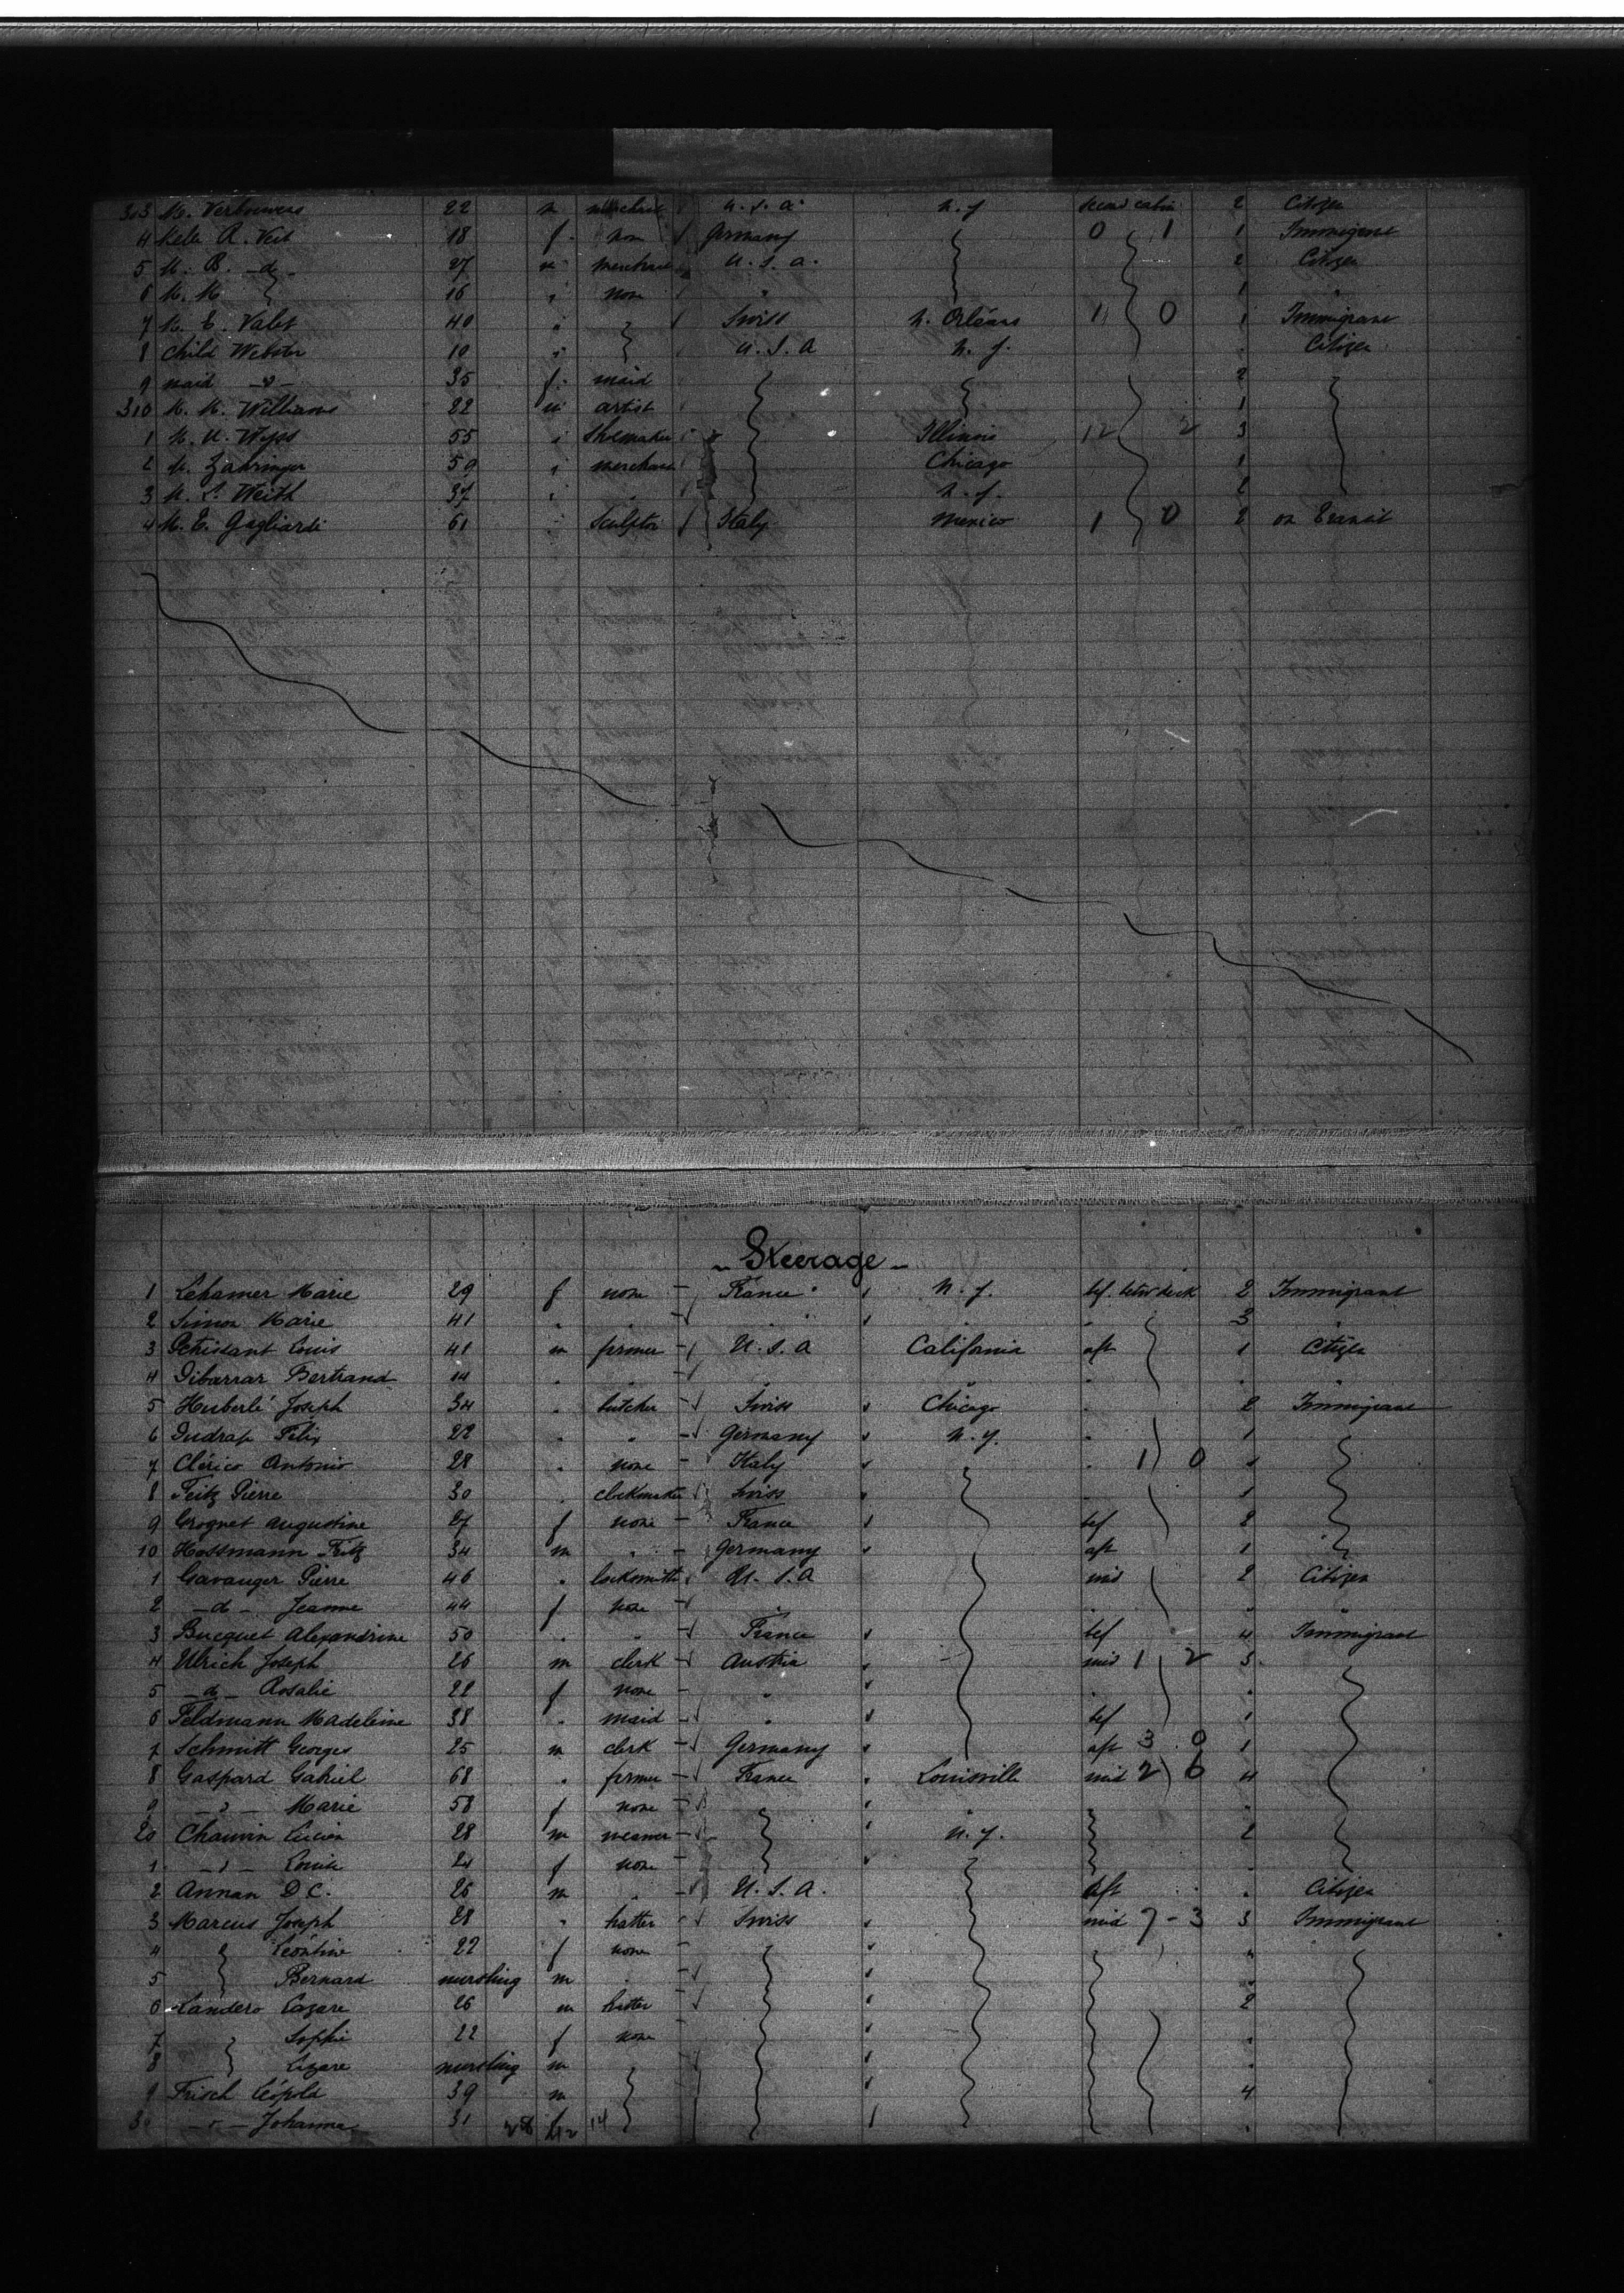 303 M. Verbouwens 22 m merchant U.S.A. N.Y. second cabin 2 Citizen
4 Melle R. Veit 18 f. none Germany 0 1 1 Immigrant
5 M. B. -d- 27 m merchant U.S.A. 2 Citizen
6 M. M. 16 " none " 1 "
7 M. E. Valet 40 " Swiss N. Orléans 1 0 1 Immigrant
8 Child Webster 10 " U.S.A N.Y. " Citizen
9 maid -d- 35 f. maid 2
310 M. M. Williams 22 m artist 1
1 M. U. Wyss 55 " Shoemaker Illinois 12 2 3
2 M. Zahringer 59 " merchant Chicago 1
3 M. L. Weith 37 " " N.Y. 2
4 M. E. Gagliardi 61 " Sculptor Italy Mexico 1 0 2 on Transit
- Steerage -
1 Lehamer Marie 29 f none - France N.Y. bef. betw deck 2 Immigrant
2 Simon Marie 41 " " - " " 3 "
3 Louis 41 m farmer - U.S.A California aft 1 Citizen
4 Dibarrar Bertrand 14 " " - " " " " "
5 Huberlé Joseph 34 " butcher - Swiss Chicago " 2 Immigrant
6 Dudrap Félix 22 " " - Germany N.Y. " 1
7 Clérico Antonio 28 " none - Italy " 1 0 "
8 Feitz Pierre 30 " clockmaker Swiss " 1
9 Grognet Augustine 27 f none - France bef 2
10 Hossmann Fritz 34 m " - Germany aft 1 "
1 Gavanger Pierre 46 " locksmith U.S.A mid 2 Citizen
2 -d- Jeanne 44 f none - " " " "
3 Bucquet Alexandrine 50 " " - France bef 4 Immigrant
4 Ulrich Joseph 26 m clerk - Austria mid 1 2 3
5 -d- Rosalie 22 f none - " " "
6 Feldmann Madeleine 38 " maid - " bef 1
7 Schmitt Georges 25 m clerk - Germany aft 3 0 1
8 Gaspard Gabriel 68 " farmer - France Louisville mid 2 6 4
9 -d- Marie 58 f none - " "
20 Chauvin Lucien 28 m weaver - N.Y. 2
1 -d- Louise 24 f none - "
2 Annan D C. 26 m " - U.S.A. aft " Citizen
3 Marcus Joseph 28 " hatter - Swiss mid 7 - 3 3 Immigrant
4 Léontine 22 f none - "
5 Bernard nursling m " - "
6 Landero Lazare 26 m hatter - 2
7 Sophie 22 f none "
8 Lazare nursling m "
9 Frisch Léopold 39 m 4
30 -d- Johanna 31 28 f 12 14 "